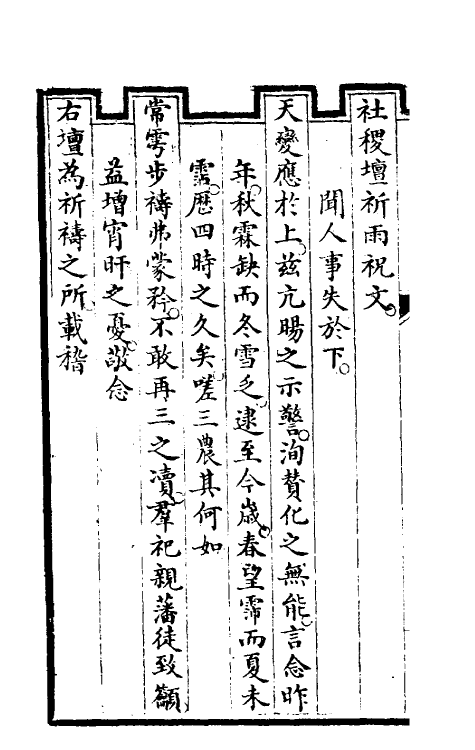 社稷壇祈雨祝文。
聞人事失於下。
天變應於上。兹亢暘之示警。洵贊化之無能。言念昨
年。秋霖缺而冬雪乏。逮至今歲。春望霈而夏未
霑。歷四時之久矣。嗟三農其何如
常雩步禱弗蒙矜。不敢再三之瀆。羣祀親藩徒致籲
益增宵旰之憂。敬念
右壇為祈禱之所。載稽